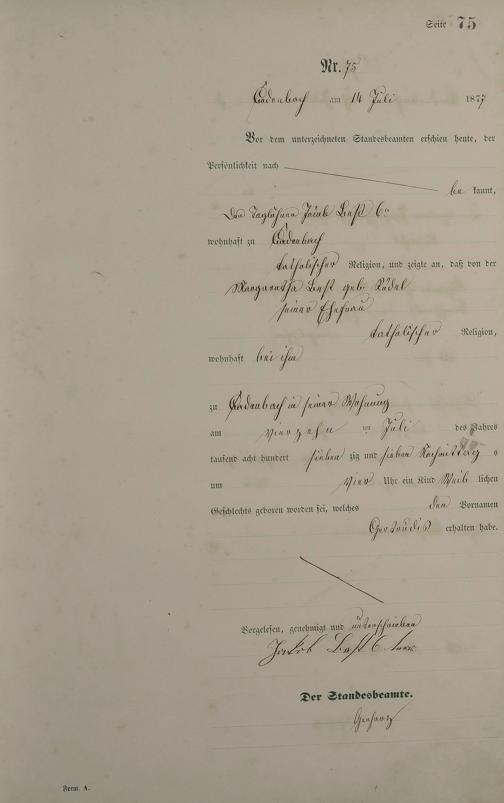 Seite 75
Nr. 75
Cadenbach am 14 Juli 1877
Vor dem unterzeichneten Standesbeamten erschien heute, der
Persönlichkeit nach
be kannt,
Der Taglöhner Jacob Best 6
wohnhaft zu Cadenbach
katholischer Religion, und zeigte an, daß von der
Margaretha Best geb.
seiner Ehefrau
katholischer Religion,
wohnhaft bei ihm
zu Cadenbach in seiner Wohnung
am vierzehn ten Juli des Jahres
tausend acht hundert sieben zig und sieben Nachmittag s
um vier Uhr ein Kind Weib lichen
Geschlechts geboren worden sei, welches den Vornamen
Gertrudis erhalten habe.
Vorgelesen, genehmigt und unterschrieben
Jakob Best 6
Der Standesbeamte.
Form. A.